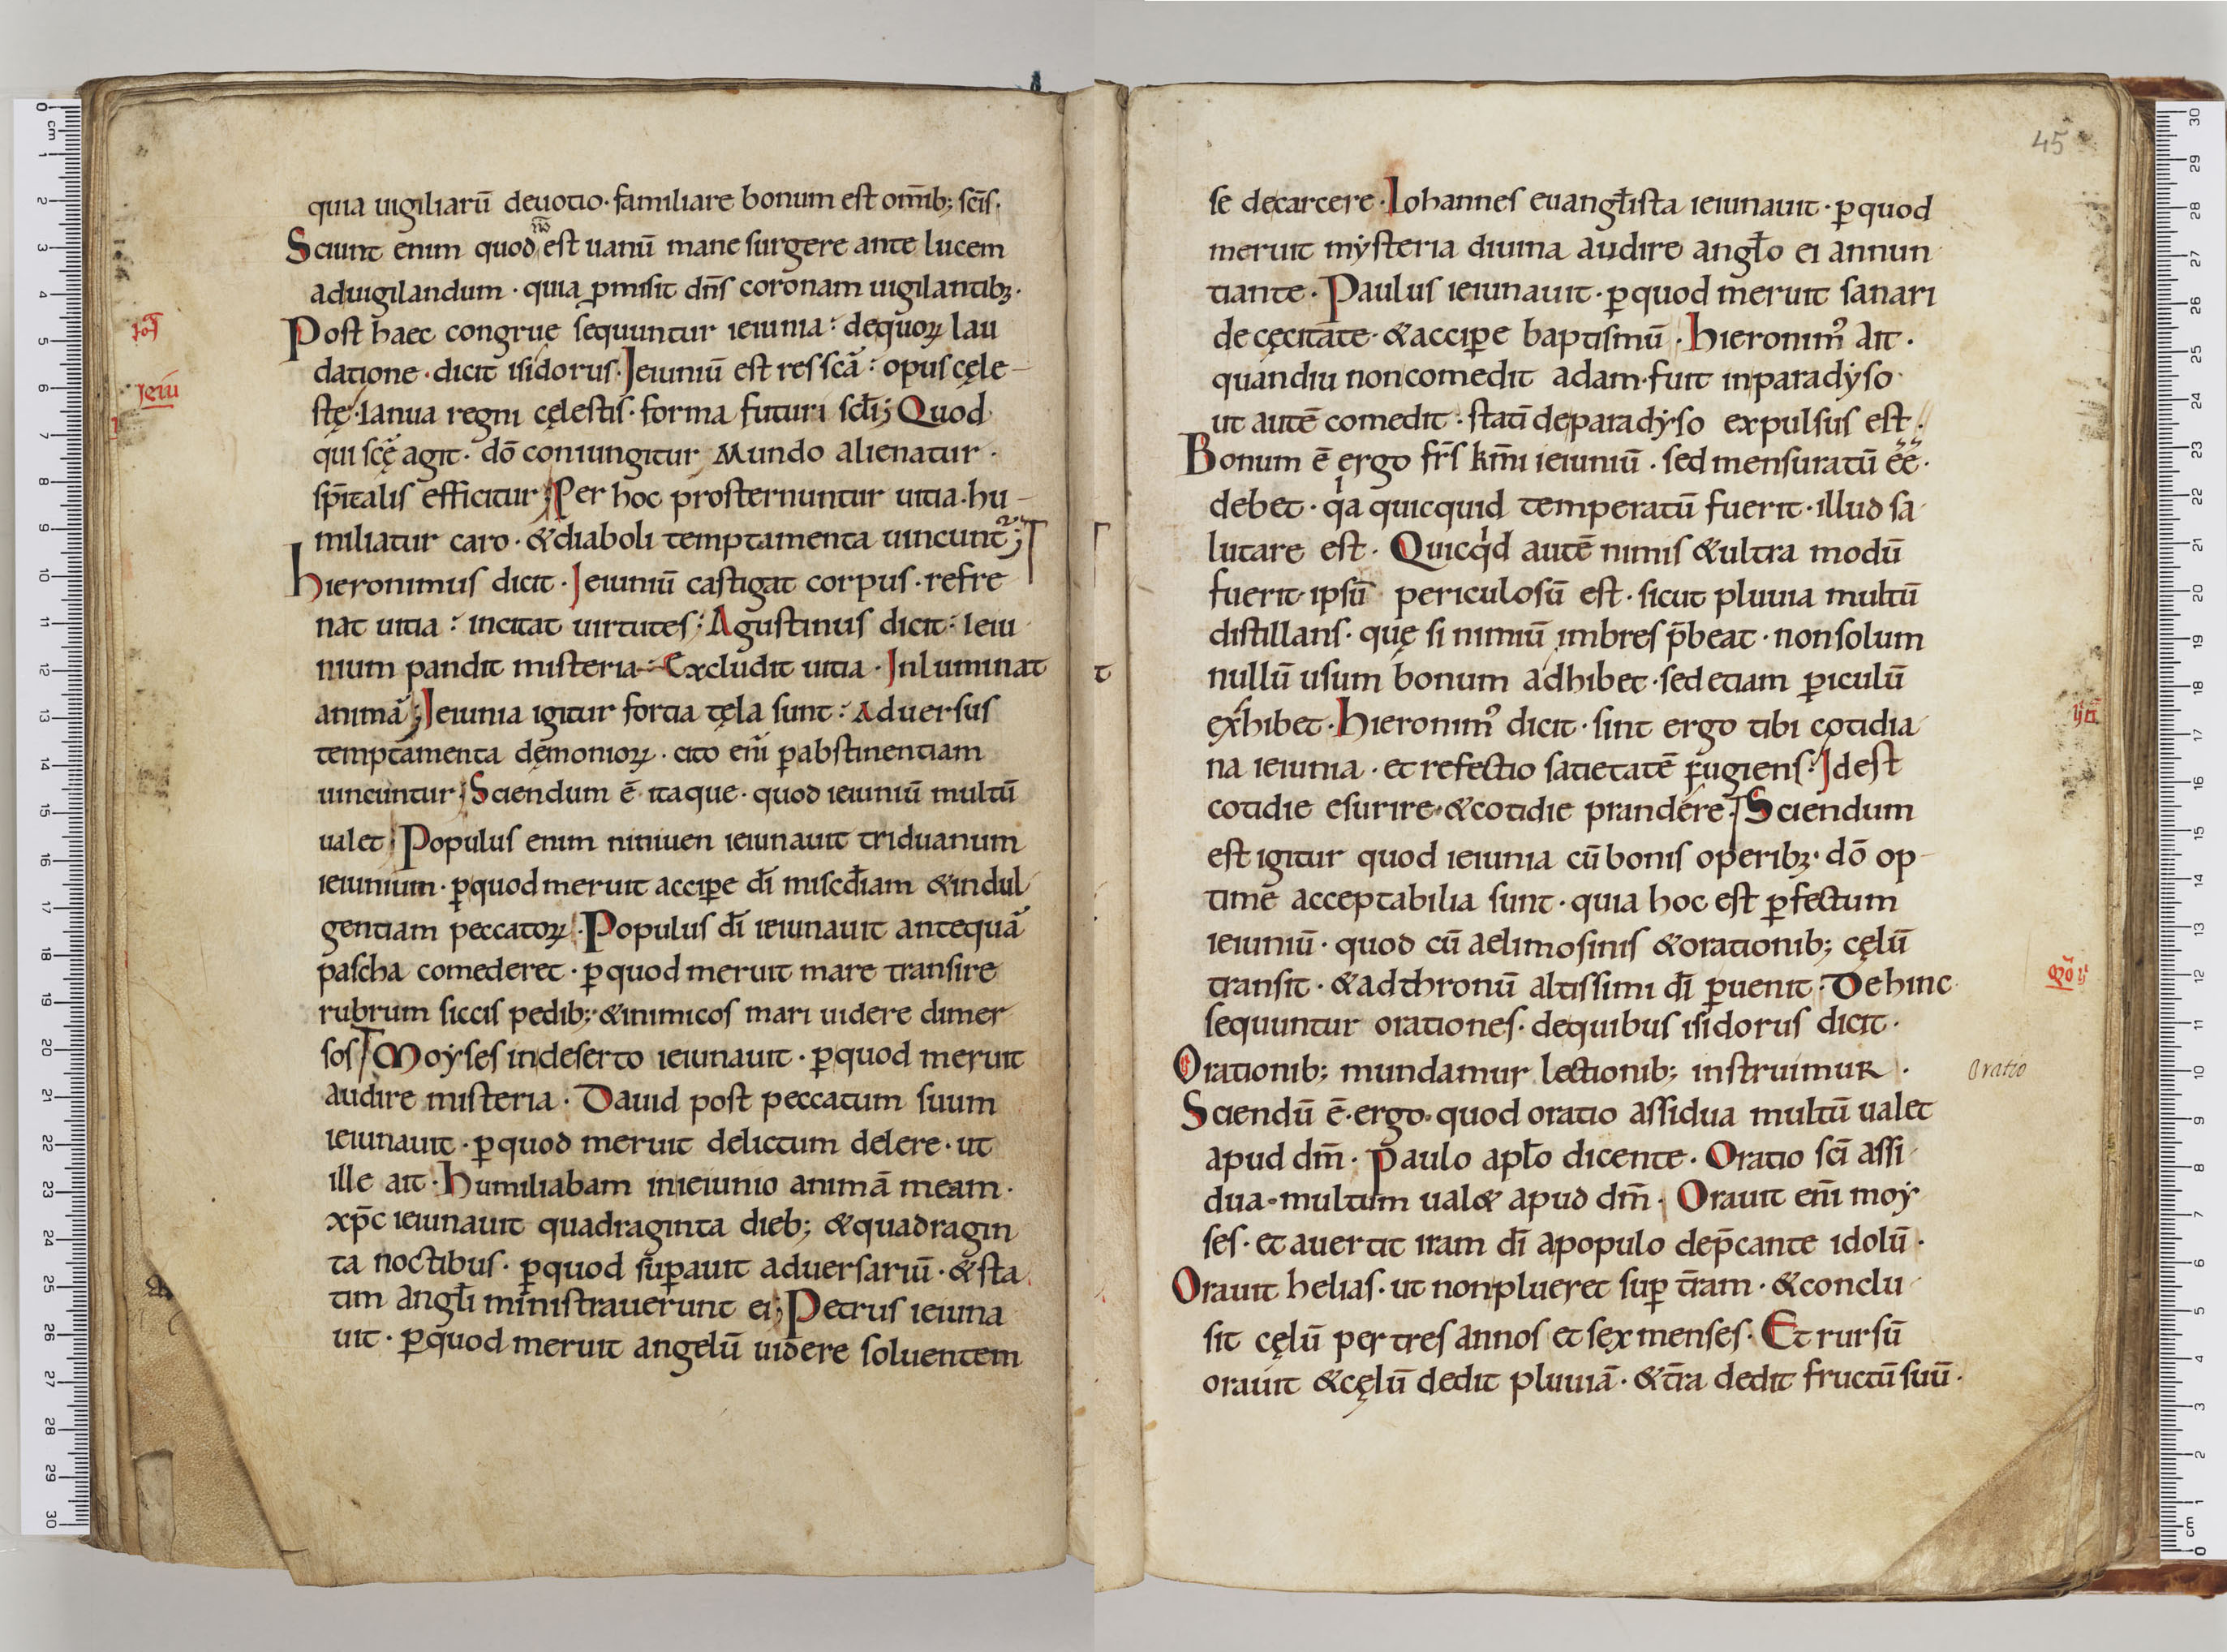 quia uigiliarū deuotio· familiare bonum est om̄ib; sc̄is·
Sciunt enim quod n̄o est uanū mane surgere ante lucem
aduigilandum · quia ꝓmisit dn̄s coronam uigilantibꝫ·
Post haec congruę sequuntur ieiunia: dequoꝝ lau
datione · dicit isidorus· Ieiuniū est res scā: opus cęle-
stę· Ianua regni cęlestis· forma futuri scłi; Quod
qui scę̄ agit· dō coniungitur Mundo alienatur ·
sp̄italis efficitur; Per hoc prosternuntur uitia· hu-
miliatur caro · &diaboli temptamenta uincunt᷑;
hieronimus dicit · Ieiuniū castigat corpus · refre
nat uitia: incitat uirtutes: Agustinus dicit: Ieiu
nium pandit misteria: Excludit uitia · Inluminat
animā; Ieiunia igitur fortia tęla sunt: Aduersus
temptamenta dęmonioꝝ · cito en̄i ꝑabstinentiam
uincuntur; Sciendum ē itaque· quod ieiuniū multū
ualet; Populus enim niniuen ieiunauit triduanum
ieiunium · ꝑquod meruit accipe dī misc̄diam &indul
gentiam peccatoꝝ · Populus dī ieiunauit antequā
pascha comederet · ꝑquod meruit mare transire
rubrum siccis pedib; &inimicos mari uidere dimer
sos Moyses indeserto ieiunauit · ꝑquod meruit
audire misteria · Dauid post peccatum suum
ieiunauit · ꝑquod meruit delictum delere · ut
ille ait · humiliabam inieiunio animā meam ·
xp̄c ieiunauit quadraginta dieb; &quadragin
ta noctibus · ꝑquod suꝑauit aduersariū · &sta
tim angłi ministrauerunt ei; Petrus ieiuna
uit · ꝑquod meruit angelū uidere soluentem
Ieiū
45
se decarcere · Iohannes euangłista ieiunauit · ꝑquod
meruit mẏsteria diuina audire angło ei annun
tiante · Paulus ieiunauit · ꝑquod meruit sanari
de cęcitate· &acciꝑe baptismū · hieronimꝰ ait ·
quandiu noncomedit adam· fuit inparadẏso·
ut autē comedit · statī deparadẏso expulsus est ·
Bonum ē ergo fr̄s km̄i ieiuniū · sed mensuratū ēē ·
debet · qͥa quicquid temperatū fuerit · illud sa
lutare est · Quicqͥd autē nimis &ultra modū
fuerit· ipsū periculosū est · sicut pluuia multū
distillans · quę si nimiū imbres p̄beat · nonsolum
nullū usum bonum adhibet · sed etiam ꝑiculū
exhibet · hieronimꝰ dicit · sint ergo tibi cotidia
na ieiunia · et refectio satietatē fugiens: Idest
cotidie esurire· &cotidie prandere: Sciendum
est igitur quod ieiunia cū bonis operibꝫ· dō op-
time acceptabilia sunt · quia hoc est ꝑfectum
ieiuniū · quod cū aelimosinis &orationib; cęlū
transit · &adthronū altissimi dī ꝑuenit: Dehinc
sequuntur orationes · dequibus isidorus dicit ·
Orationib; mundamur lectionib; instruimuR ·
Sciendū ē· ergo· quod oratio assidua multū ualet
apud dm̄ · Paulo apło dicente · Oratio scī assi
dua· multum ual& apud dm̄ · Orauit en̄i moẏ
ses · et auertit iram dī apopulo dep̄cante idolū ·
Orauit helias · ut nonplueret suꝑ t̄ram · &conclu
sit cęlū per tres annos et sex menses · Et rursū
orauit &cęlū dedit pluuiā · &t̄ra dedit fructū suū ·
Oratio